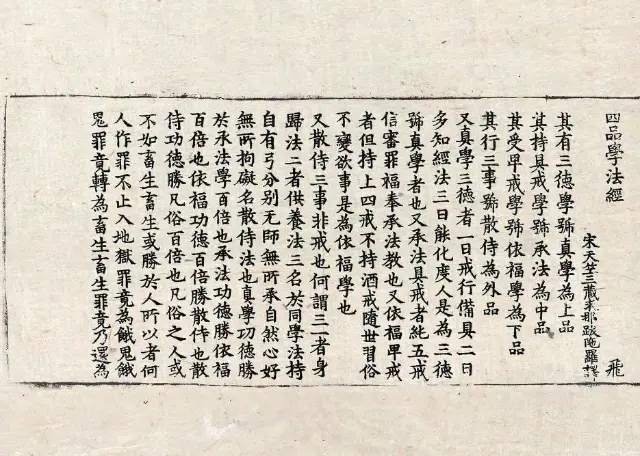 四品學法經 飛
宋天竺三藏求那跋陀羅譯
其有三德學號真學為上品
其持具戒學號承法為中品
其受卑戒學號依福學為下品
其行三事號散侍為外品
又真學三德者一曰戒行備具二曰
多知經法三曰能化度人是為三德
號真學者也又承法具戒者純五戒
信審罪福奉承法教也又依福卑戒
者但持上四戒不持酒戒隨世習俗
不變欲事是為依福學也
又散侍三事非戒也何謂三一者身
歸法二者供養法三名於同學法持
自有弓分別无師無所承自然心好
無所拘礙名散侍法也真學功德勝
於承法學百倍也承法功德勝依福
百倍也依福功德百倍勝散侍也散
侍功德勝凡俗百倍也凡俗之人或
不如畜生畜生或勝於人所以者何
人作罪不止入地獄罪竟為餓鬼餓
鬼罪竟轉為畜生畜生罪竟乃還為